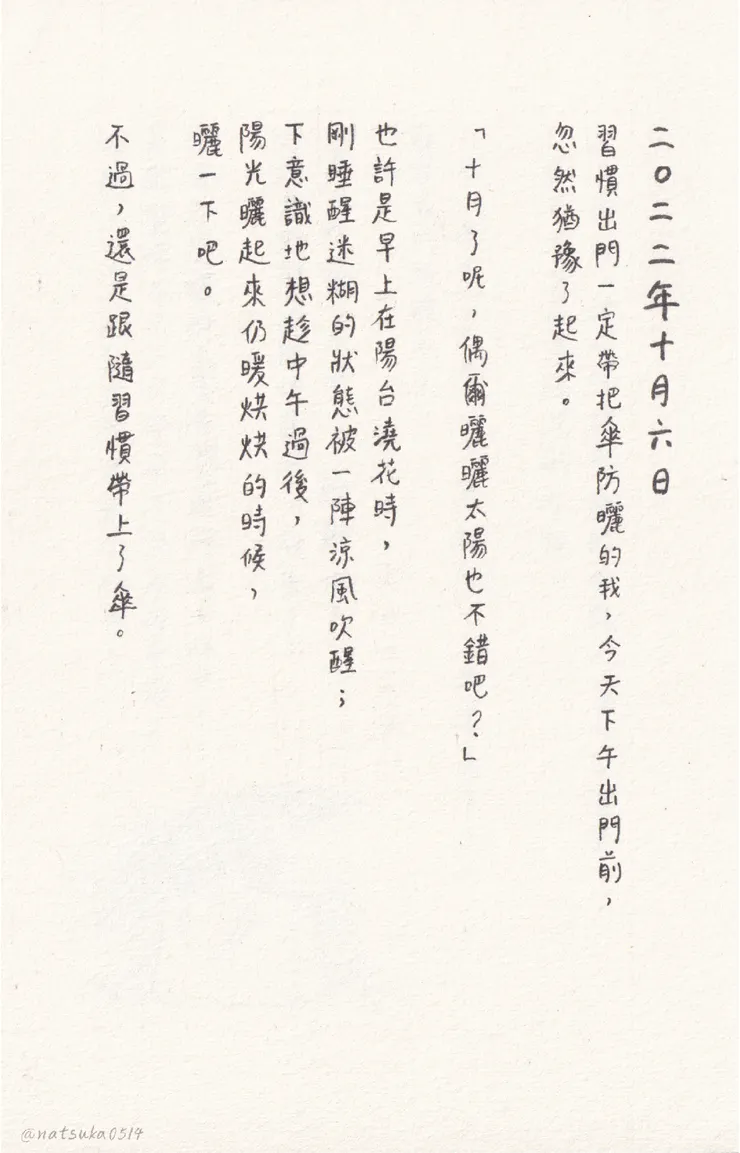 二〇二二年十月六日
習慣出門一定帶把傘防曬的我，今天下午出門前，
忽然猶豫了起來。
「十月了呢，偶爾曬曬太陽也不錯吧？」
也許是早上在陽台澆花時，
剛睡醒迷糊的狀態被一陣涼風吹醒；
下意識地想趁中午過後，
陽光曬起來仍暖烘烘的時候，
曬一下吧。
不過，還是跟隨習慣帶上了傘。
@natsuka0514